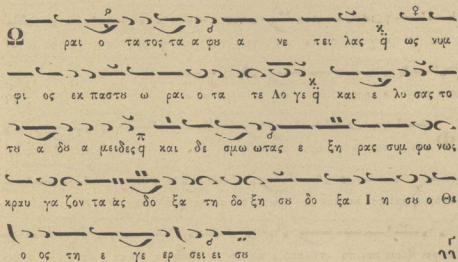 Ω ραι ο τα τος τα α φυ α νε τει λας ως νυμ
φι ος εκ παστυ ω ραι ο τα τε Λο γε και ε λυ σας το
τυ α δυ α μειδες και δε σμω ωτας ε ξη ρας συμ φω νως
κραυ γα ζον τα ὰς δο ξα τη δο ξη συ δο ξα Ι η συ ο Θε
ο ος τη ε γε ερ σει ει συ